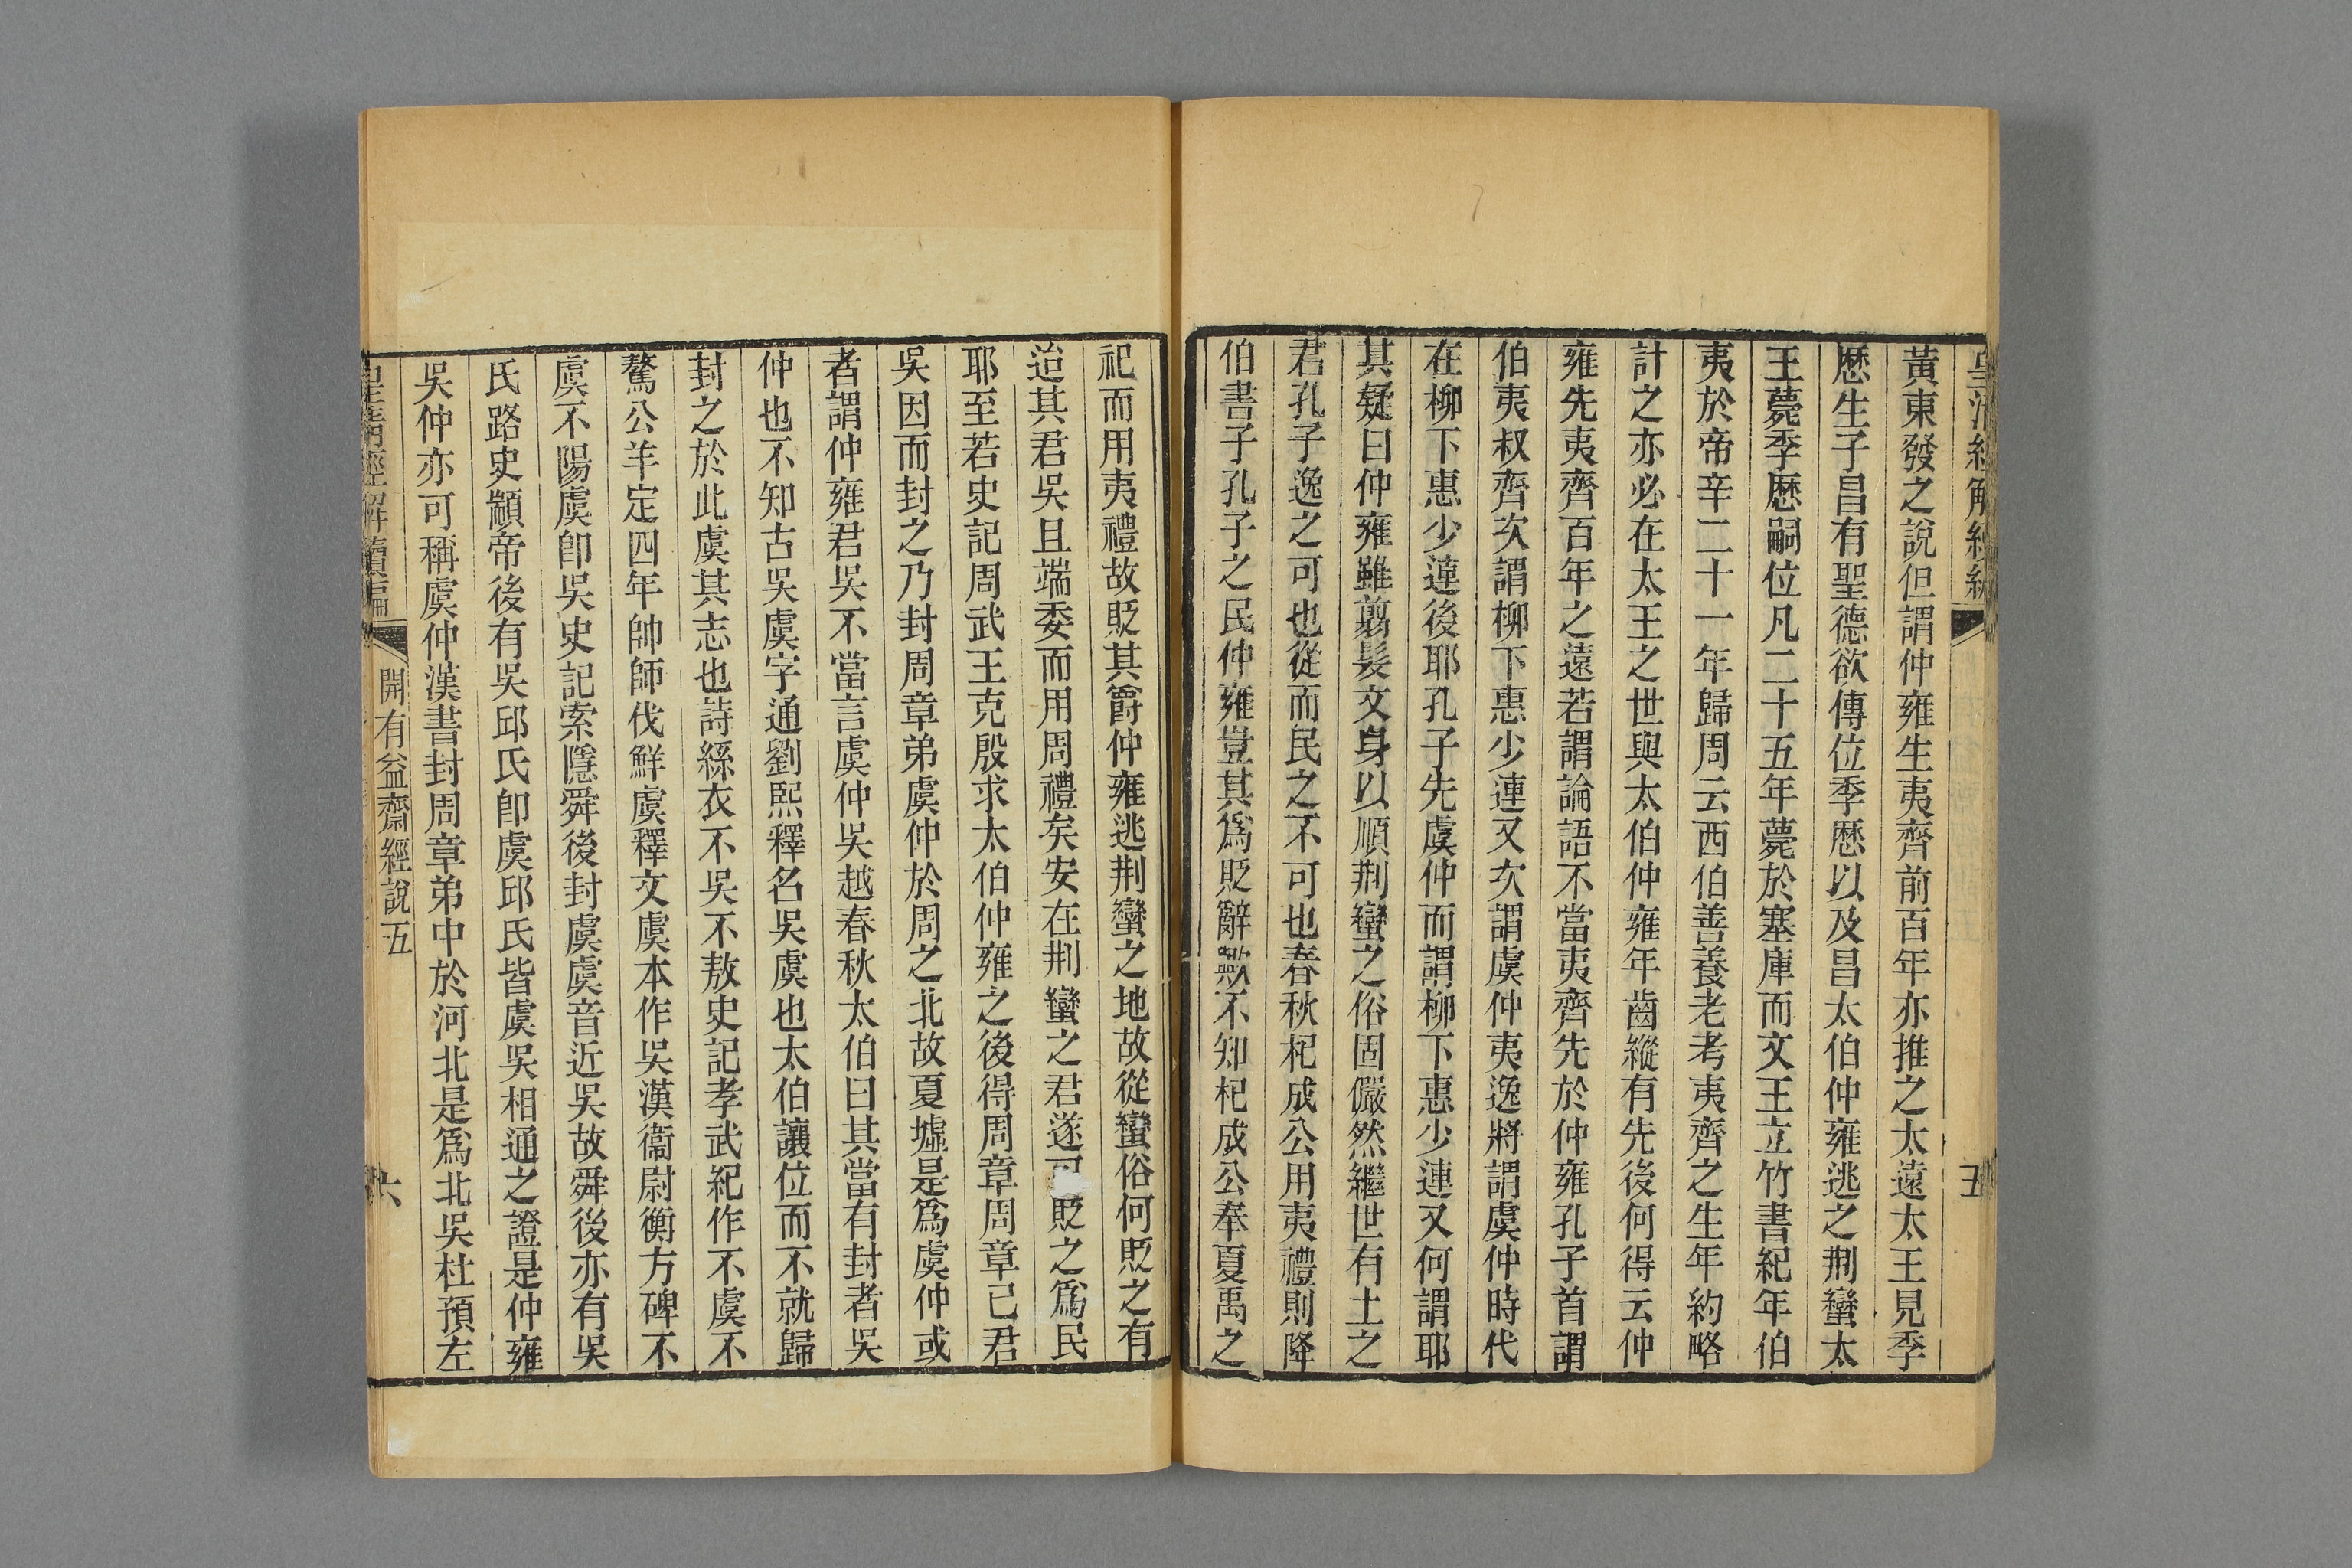 皇清經解續編
五
黃東發之說但謂仲雍生夷齊前百年亦推之太遠太王見季
歷生子昌有聖德欲傳位季歷以及昌太伯仲雍逃之荆蠻太
王薨季歷嗣位凡二十五年薨於塞庫而文王立竹書紀年伯
夷於帝辛二十一年歸周云西伯善養老考夷齊之生年約略
計之亦必在太王之世與太伯仲雍年齒縱有先後何得云仲
雍先夷齊百年之遠若謂論語不當夷齊先於仲雍孔子首謂
伯夷叔齊次謂柳下惠少連又次謂虞仲夷逸將謂虞仲時代
在柳下惠少連後耶孔子先虞仲而謂柳下惠少連又何謂耶
其疑曰仲雍雖翦髮文身以順荆蠻之俗固儼然繼世有土之
君孔子逸之可也從而民之不可也春秋杞成公用夷禮則降
伯書子孔子之民仲雍豈其爲貶辭歟不知杞成公奉夏禹之
祀而用夷禮故貶其爵仲雍逃荆蠻之地故從蠻俗何貶之有
迨其君吳且端委而用周禮矣安在荆蠻之君遂可貶之爲民
耶至若史記周武王克殷求太伯仲雍之後得周章周章已君
吳因而封之乃封周章弟虞仲於周之北故夏墟是爲虞仲或
者謂仲雍君吳不當言虞仲吳越春秋太伯曰其當有封者吳
仲也不知古吳虞字通劉熙釋名吳虞也太伯讓位而不就歸
封之於此虞其志也詩絲衣不吳不敖史記孝武紀作不虞不
驁公羊定四年帥師伐鮮虞釋文虞本作吳漢衞尉衡方碑不
虞不陽虞卽吳史記索隱舜後封虞虞音近吳故舜後亦有吳
氏路史顓帝後有吳邱氏卽虞邱氏皆虞吳相通之證是仲雍
吳仲亦可稱虞仲漢書封周章弟中於河北是爲北吳杜預左
皇淸經解續編
開有益齋經說五
六